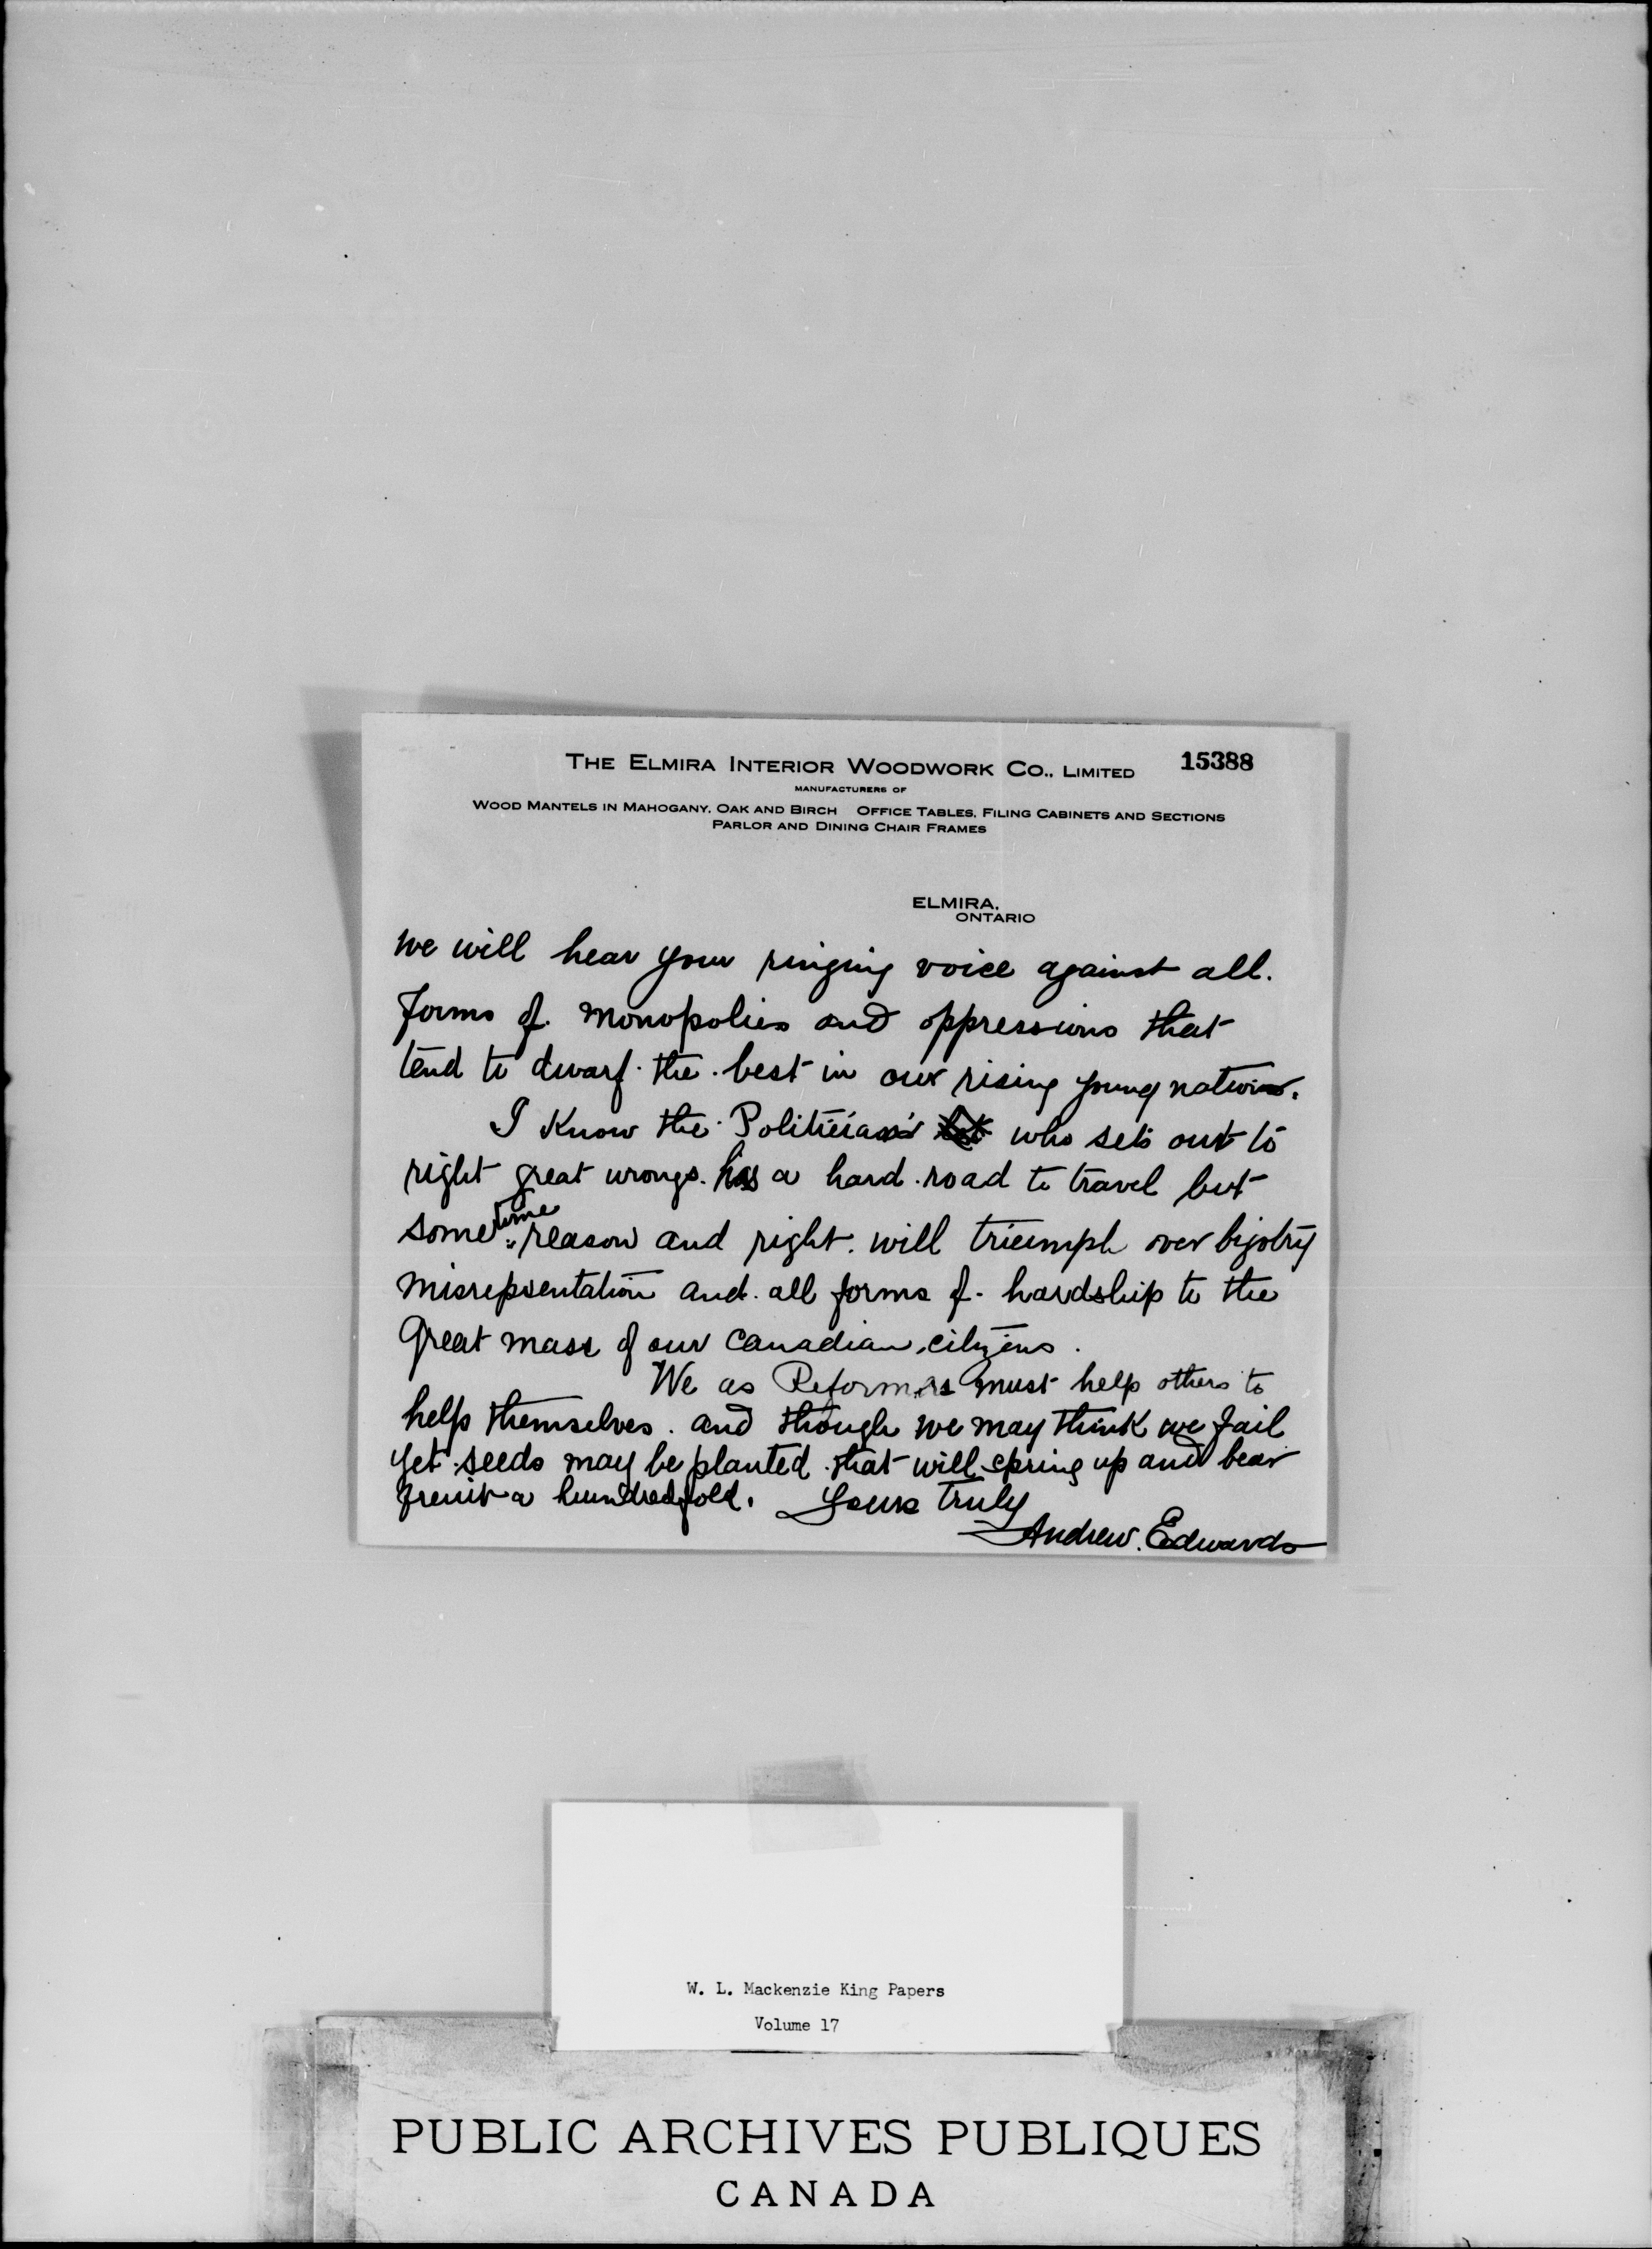 THE ELMIRA INTERIOR WOODWORK CO., LIMITED 15388
MANUFACTURERS OF
WOOD MANTELS IN MAHOGANY, OAK AND BIRCH OFFICE TABLES, FILING CABINETS AND SECTIONS
PARLOR AND DINING CHAIR FRAMES
ELMIRA,
ONTARIO
we will hear your ringing voice against all.
forms of monopolies and oppressions that
tend to dwarf the best in our rising young nation.
I know the Politician who sets out to
right great wrongs. has a hard road to travel but
some time reason and right will triumph over bigotry
misrepsentation and all forms of hardship to the
great mass of our Canadian citizens.
We as Reformers must help others to
help themselves. and though we may think we fail
yet seeds may be planted that will spring up and bear
fruit a hundredfold. Yours truly
Andrew. Edwards
W. L. Mackenzie King Papers
Volume 17
PUBLIC ARCHIVES PUBLIQUES
CANADA